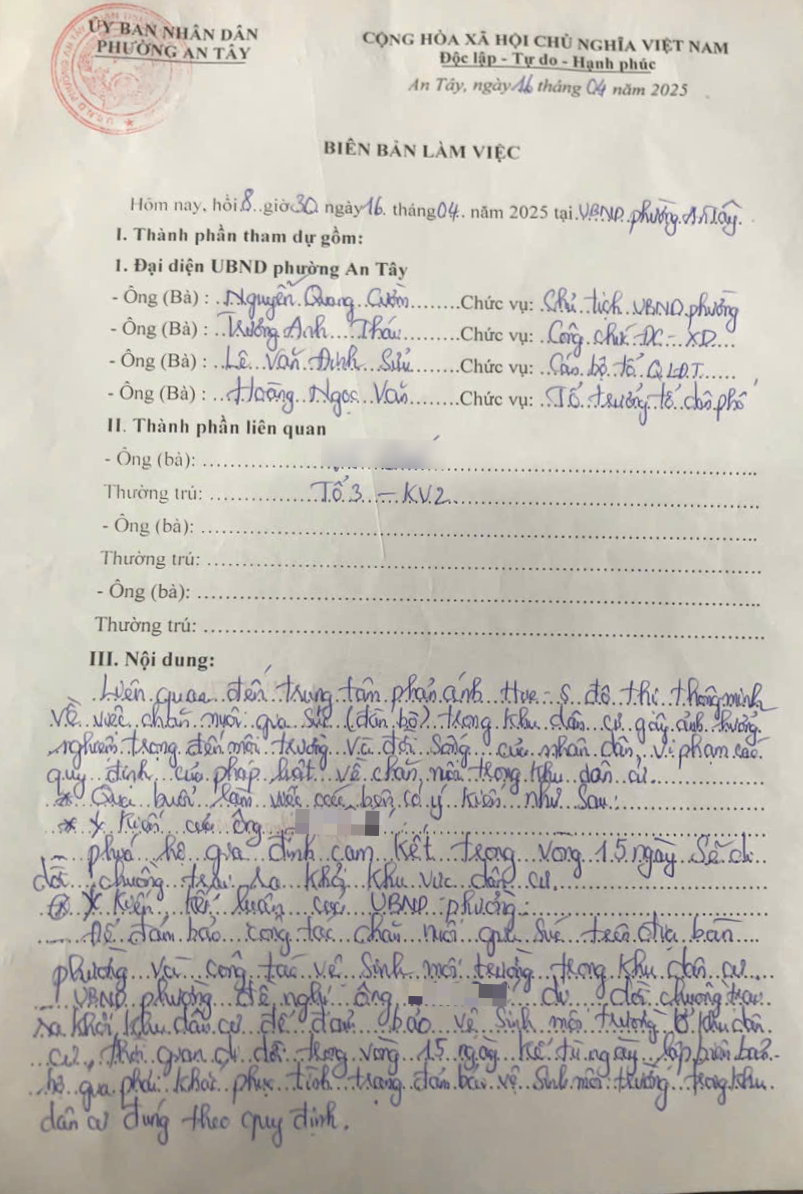 ỦY BAN NHÂN DÂN
PHƯỜNG AN TÂY
CỘNG HÒA XÃ HỘI CHỦ NGHĨA VIỆT NAM
Độc lập - Tự do - Hạnh phúc
An Tây, ngày 16 tháng 04 năm 2025
BIÊN BẢN LÀM VIỆC
Hôm nay, hồi 8 giờ 30 ngày 16 tháng 04 năm 2025 tại UBND phường An Tây
I. Thành phần tham dự gồm:
1. Đại diện UBND phường An Tây
- Ông (Bà) : Nguyễn Quang Cườm Chức vụ: Chủ tịch UBND phường
- Ông (Bà) : Trương Anh Chức vụ: Công chức ĐC - XD
- Ông (Bà) : Lê Văn Đình Sửu Chức vụ: Cán bộ tổ QLĐT
- Ông (Bà) : Hoàng Ngọc Văn Chức vụ: Tổ trưởng tổ dân phố
II. Thành phần liên quan
- Ông (bà):
Thường trú: Tổ 3 - KV2
- Ông (bà):
Thường trú:
- Ông (bà):
Thường trú:
III. Nội dung:
Liên quan đến trung tâm phản ánh Hue-S đô thị thông minh
về việc chăn nuôi gia súc (đàn bò) trong khu dân cư gây ảnh hưởng
nghiêm trọng đến môi trường và đời sống của nhân dân, vi phạm các
quy định của pháp luật về chăn nuôi trong khu dân cư
* Qua buổi làm việc các bên có ý kiến như sau:
* Ý kiến của ông
phía hộ gia đình cam kết trong vòng 15 ngày sẽ di
dời chuồng trại ra khỏi khu vực dân cư.
* Ý kiến kết luận của UBND phường:
Để đảm bảo công tác chăn nuôi gia súc trên địa bàn
phường và công tác vệ sinh môi trường trong khu dân cư
UBND phường đề nghị ông di dời chuồng trại
ra khỏi khu dân cư để đảm bảo vệ sinh môi trường ở khu dân
cư, thời gian di dời trong vòng 15 ngày kể từ ngày lập biên bản
hộ gia phải khắc phục tình trạng đảm bảo vệ sinh môi trường trong khu
dân cư đúng theo quy định.